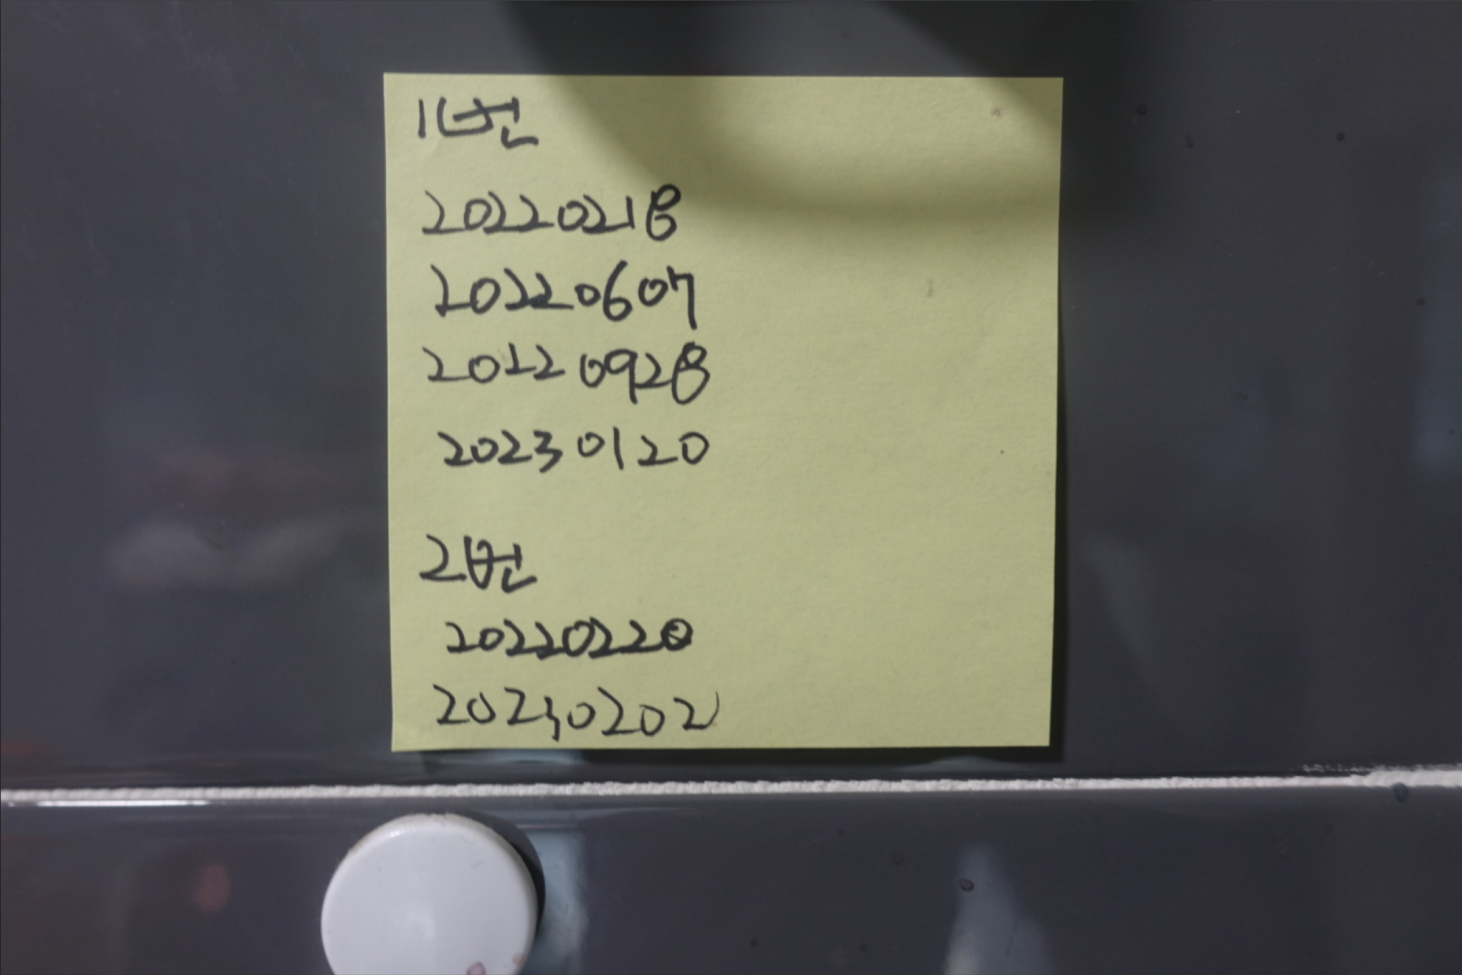 1번
20220218
20220607
20220928
20230120
2번
20220220
20230202